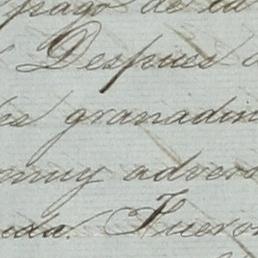 pago de la
Despues
granadin
muy advers
Fueron